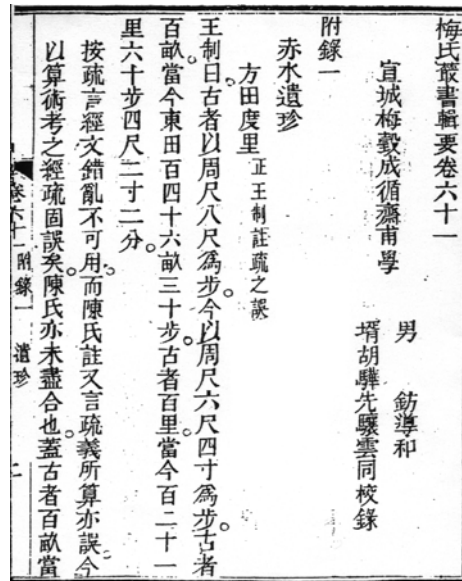 梅氏叢書輯要卷六十一
宣城梅瑴成循齋甫學
男 鈁導和
壻胡驊先驤雲同校錄
附錄一
赤水遺珍
方田度里 正王制註疏之誤
王制曰古者以周尺八尺爲步今以周尺六尺四寸爲步古者
百畝當今東田百四十六畝三十步古者百里當今百二十一
里六十步四尺二寸二分
按疏言經文錯亂不可用而陳氏註又言疏義所算亦誤今
以算術考之經疏固誤矣陳氏亦未盡合也蓋古者百畝當
卷六十一附錄一 遺珍